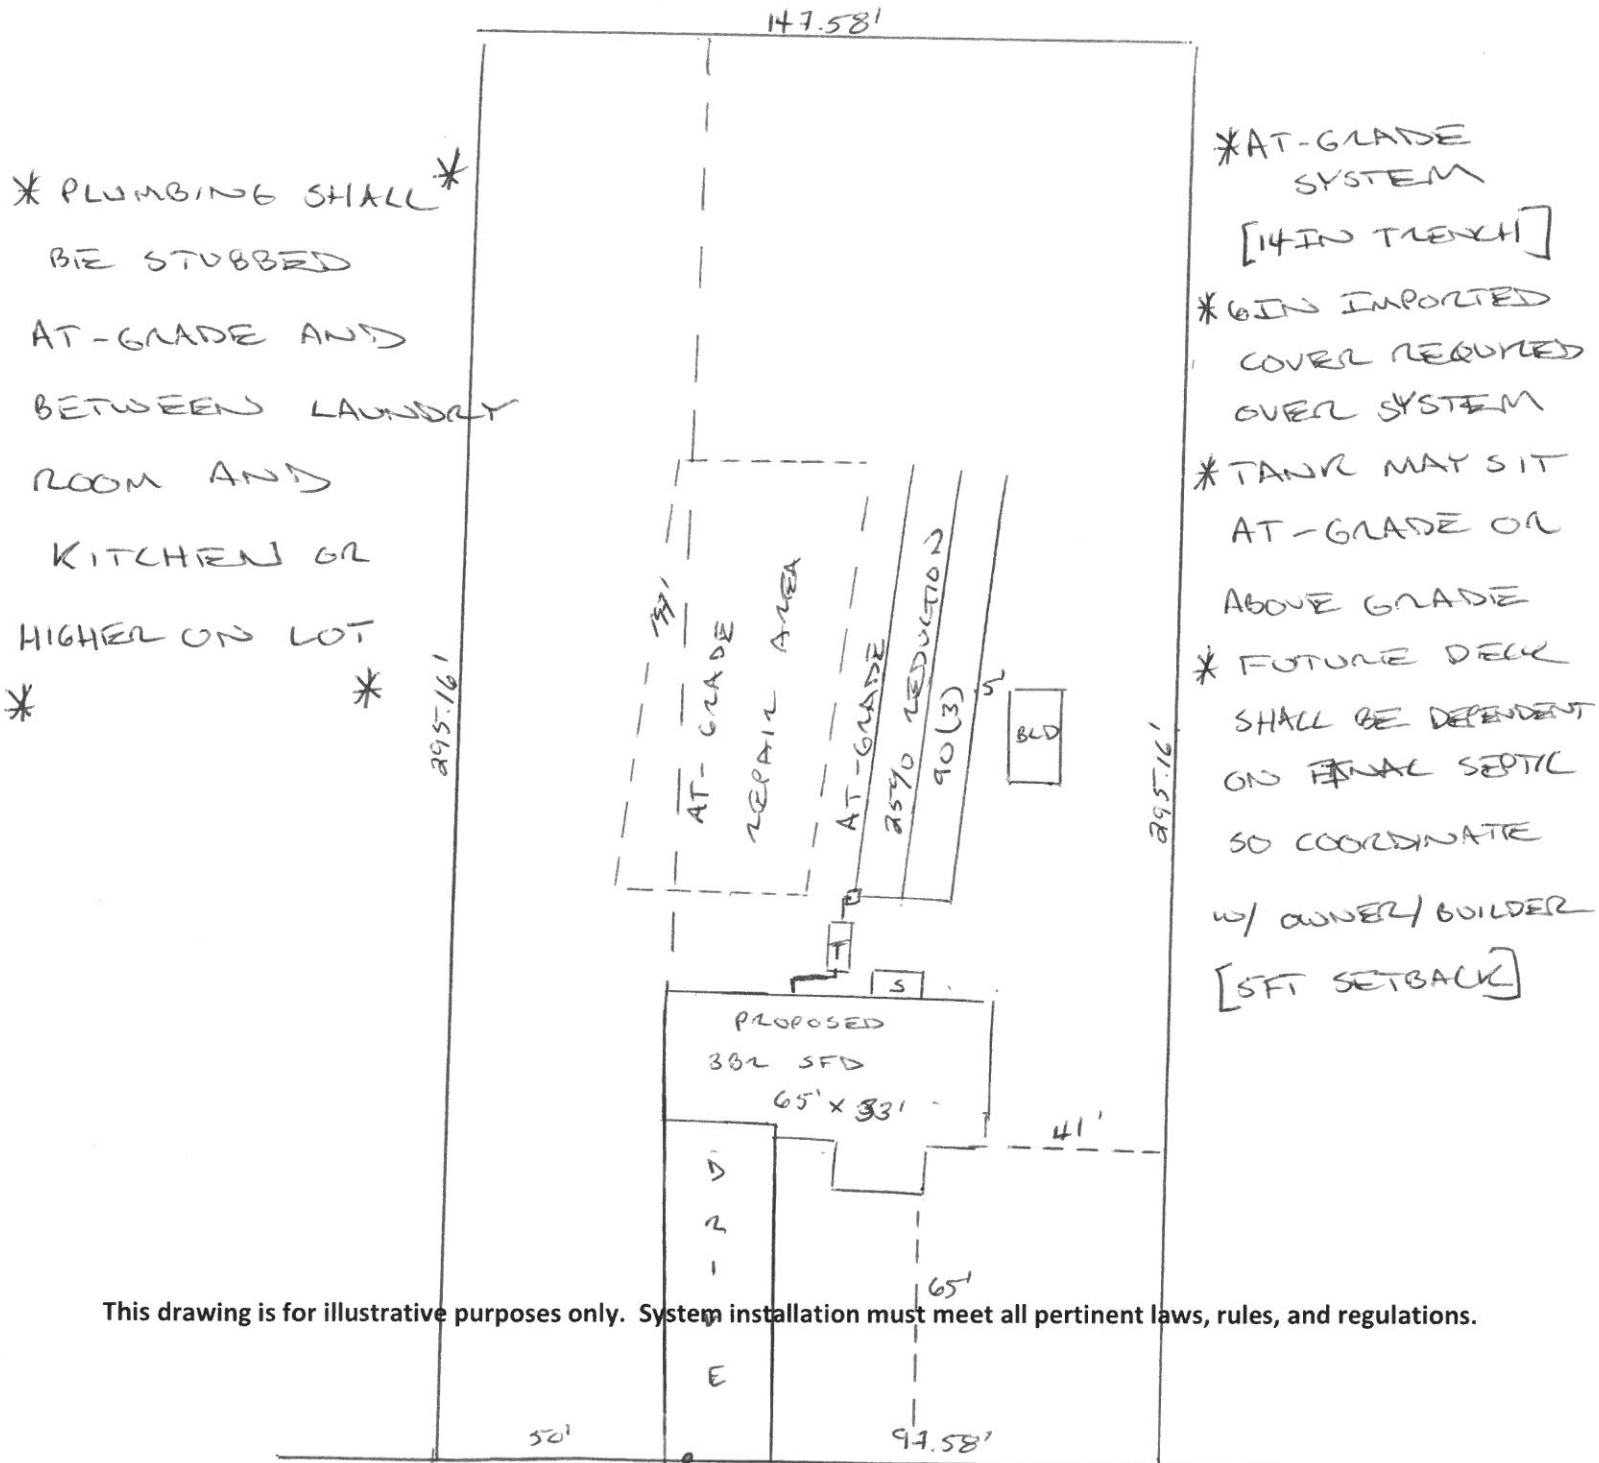 147.58'
* PLUMBING SHALL *
BE STUBBED
AT-GRADE AND
BETWEEN LAUNDRY
ROOM AND
KITCHEN OR
HIGHER ON LOT
* *
*AT-GRADE
SYSTEM
[14IN TRENCH]
*6IN IMPORTED
COVER REQUIRED
OVER SYSTEM
*TANK MAY SIT
AT-GRADE OR
ABOVE GRADE
* FUTURE DECK
SHALL BE DEPENDENT
ON FINAL SEPTIC
SO COORDINATE
W/ OWNER/BUILDER
[5FT SETBACK]
295.16'
AT-GRADE
REPAIR AREA
AT-GRADE
25% REDUCTION
90(3)
BLD
295.16'
T
S
PROPOSED
3BR SFD
65' x 33'
41'
DRIVE
65'
This drawing is for illustrative purposes only. System installation must meet all pertinent laws, rules, and regulations.
50'
97.58'